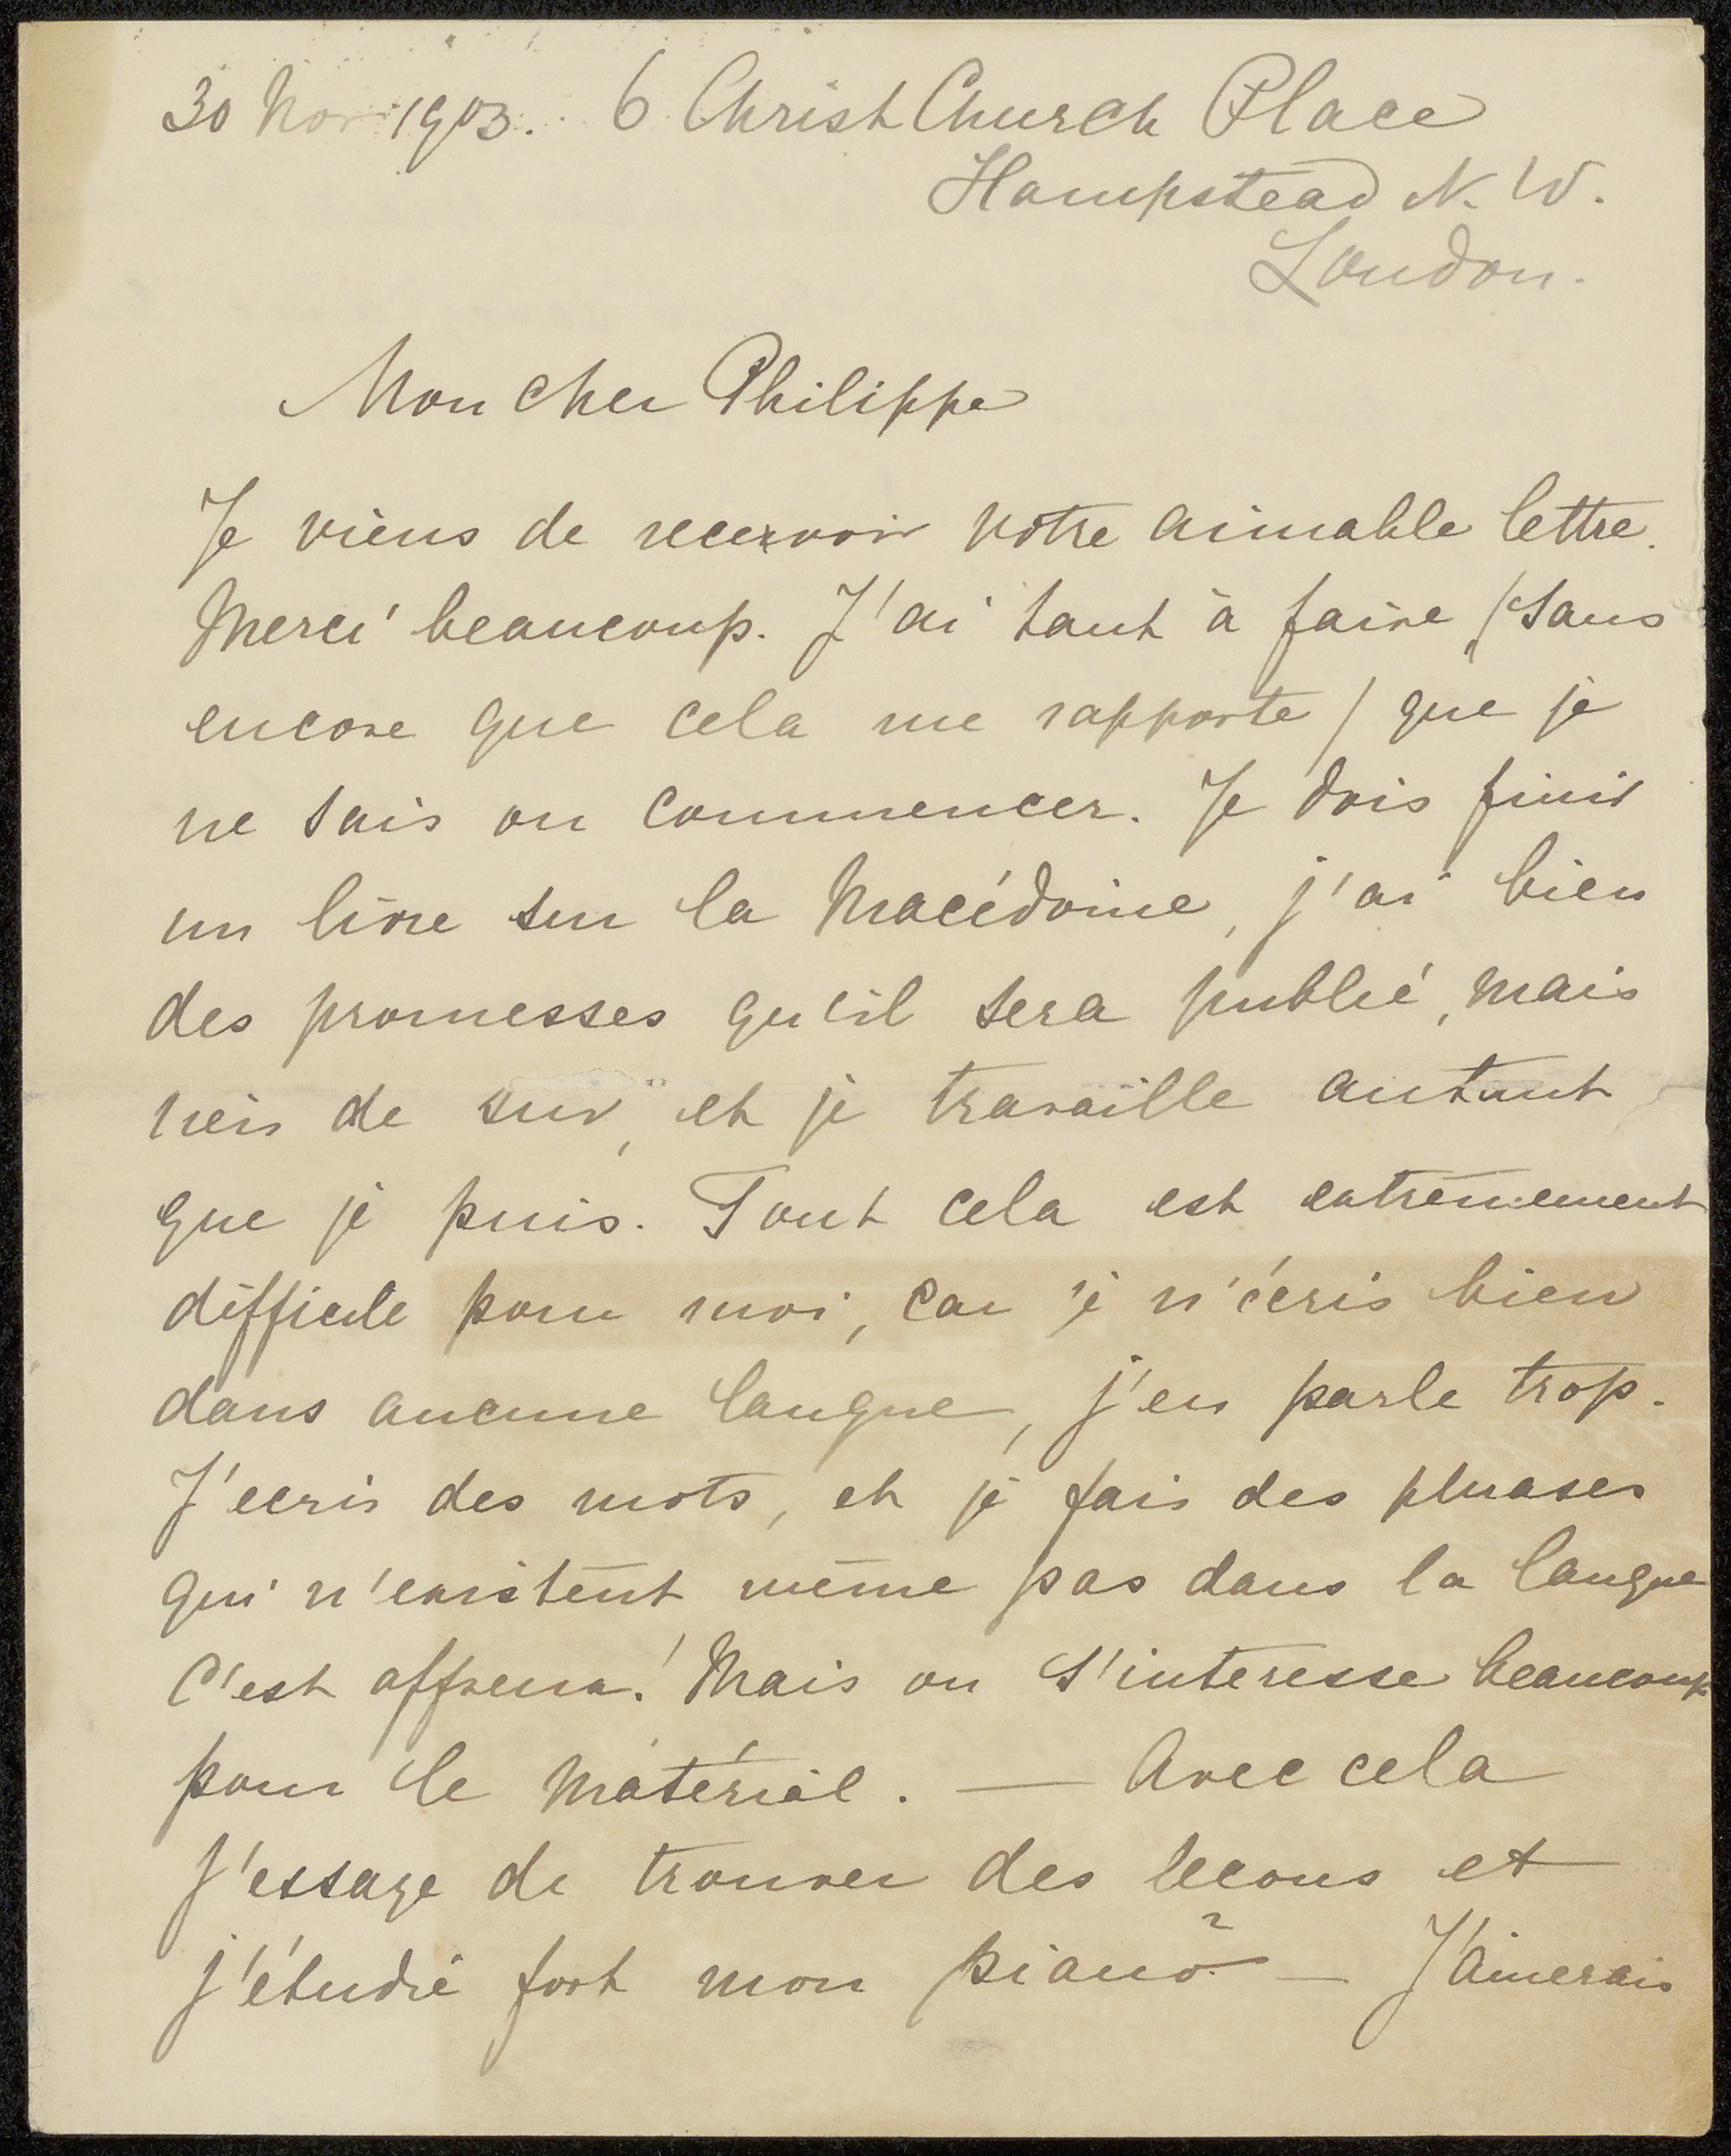 30 Nov 1903. 6 Christ Church Place
Hampstead N. W.
London.
Mon cher Philippe
Je viens de recevoir votre aimable lettre.
Merci beaucoup. J'ai tant à faire, (sans
encore que cela me rapporte) que je
ne sais ou commencer. Je dois finir
un livre sur la Macédoine, j'ai bien
des promesses qu'il sera publié, mais
rein de sur, et je travaille autant
que je puis. Tout cela est extrêmement
difficile pour moi, car je n'écris bien
dans aucune langue, j'en parle trop.
J'ecris des mots, et je fais des phrases
qui n'existent même pas dans la langue
C'est affreux! Mais on s'interesse beaucoup
pour le matériel. — Avec cela
j'essaye de trouver des lecons et
j'étudie fort mon piano. — J'aimerais